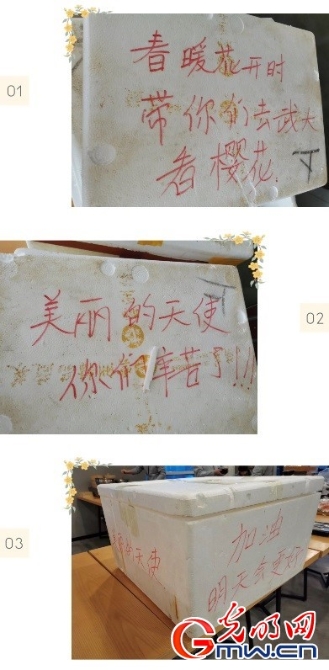 01
春暖花开时
带你们去武大
看樱花.
02
美丽的天使
你们辛苦了!!!
03
的天使
加油
明天会更好
光明网
Gmw.cn